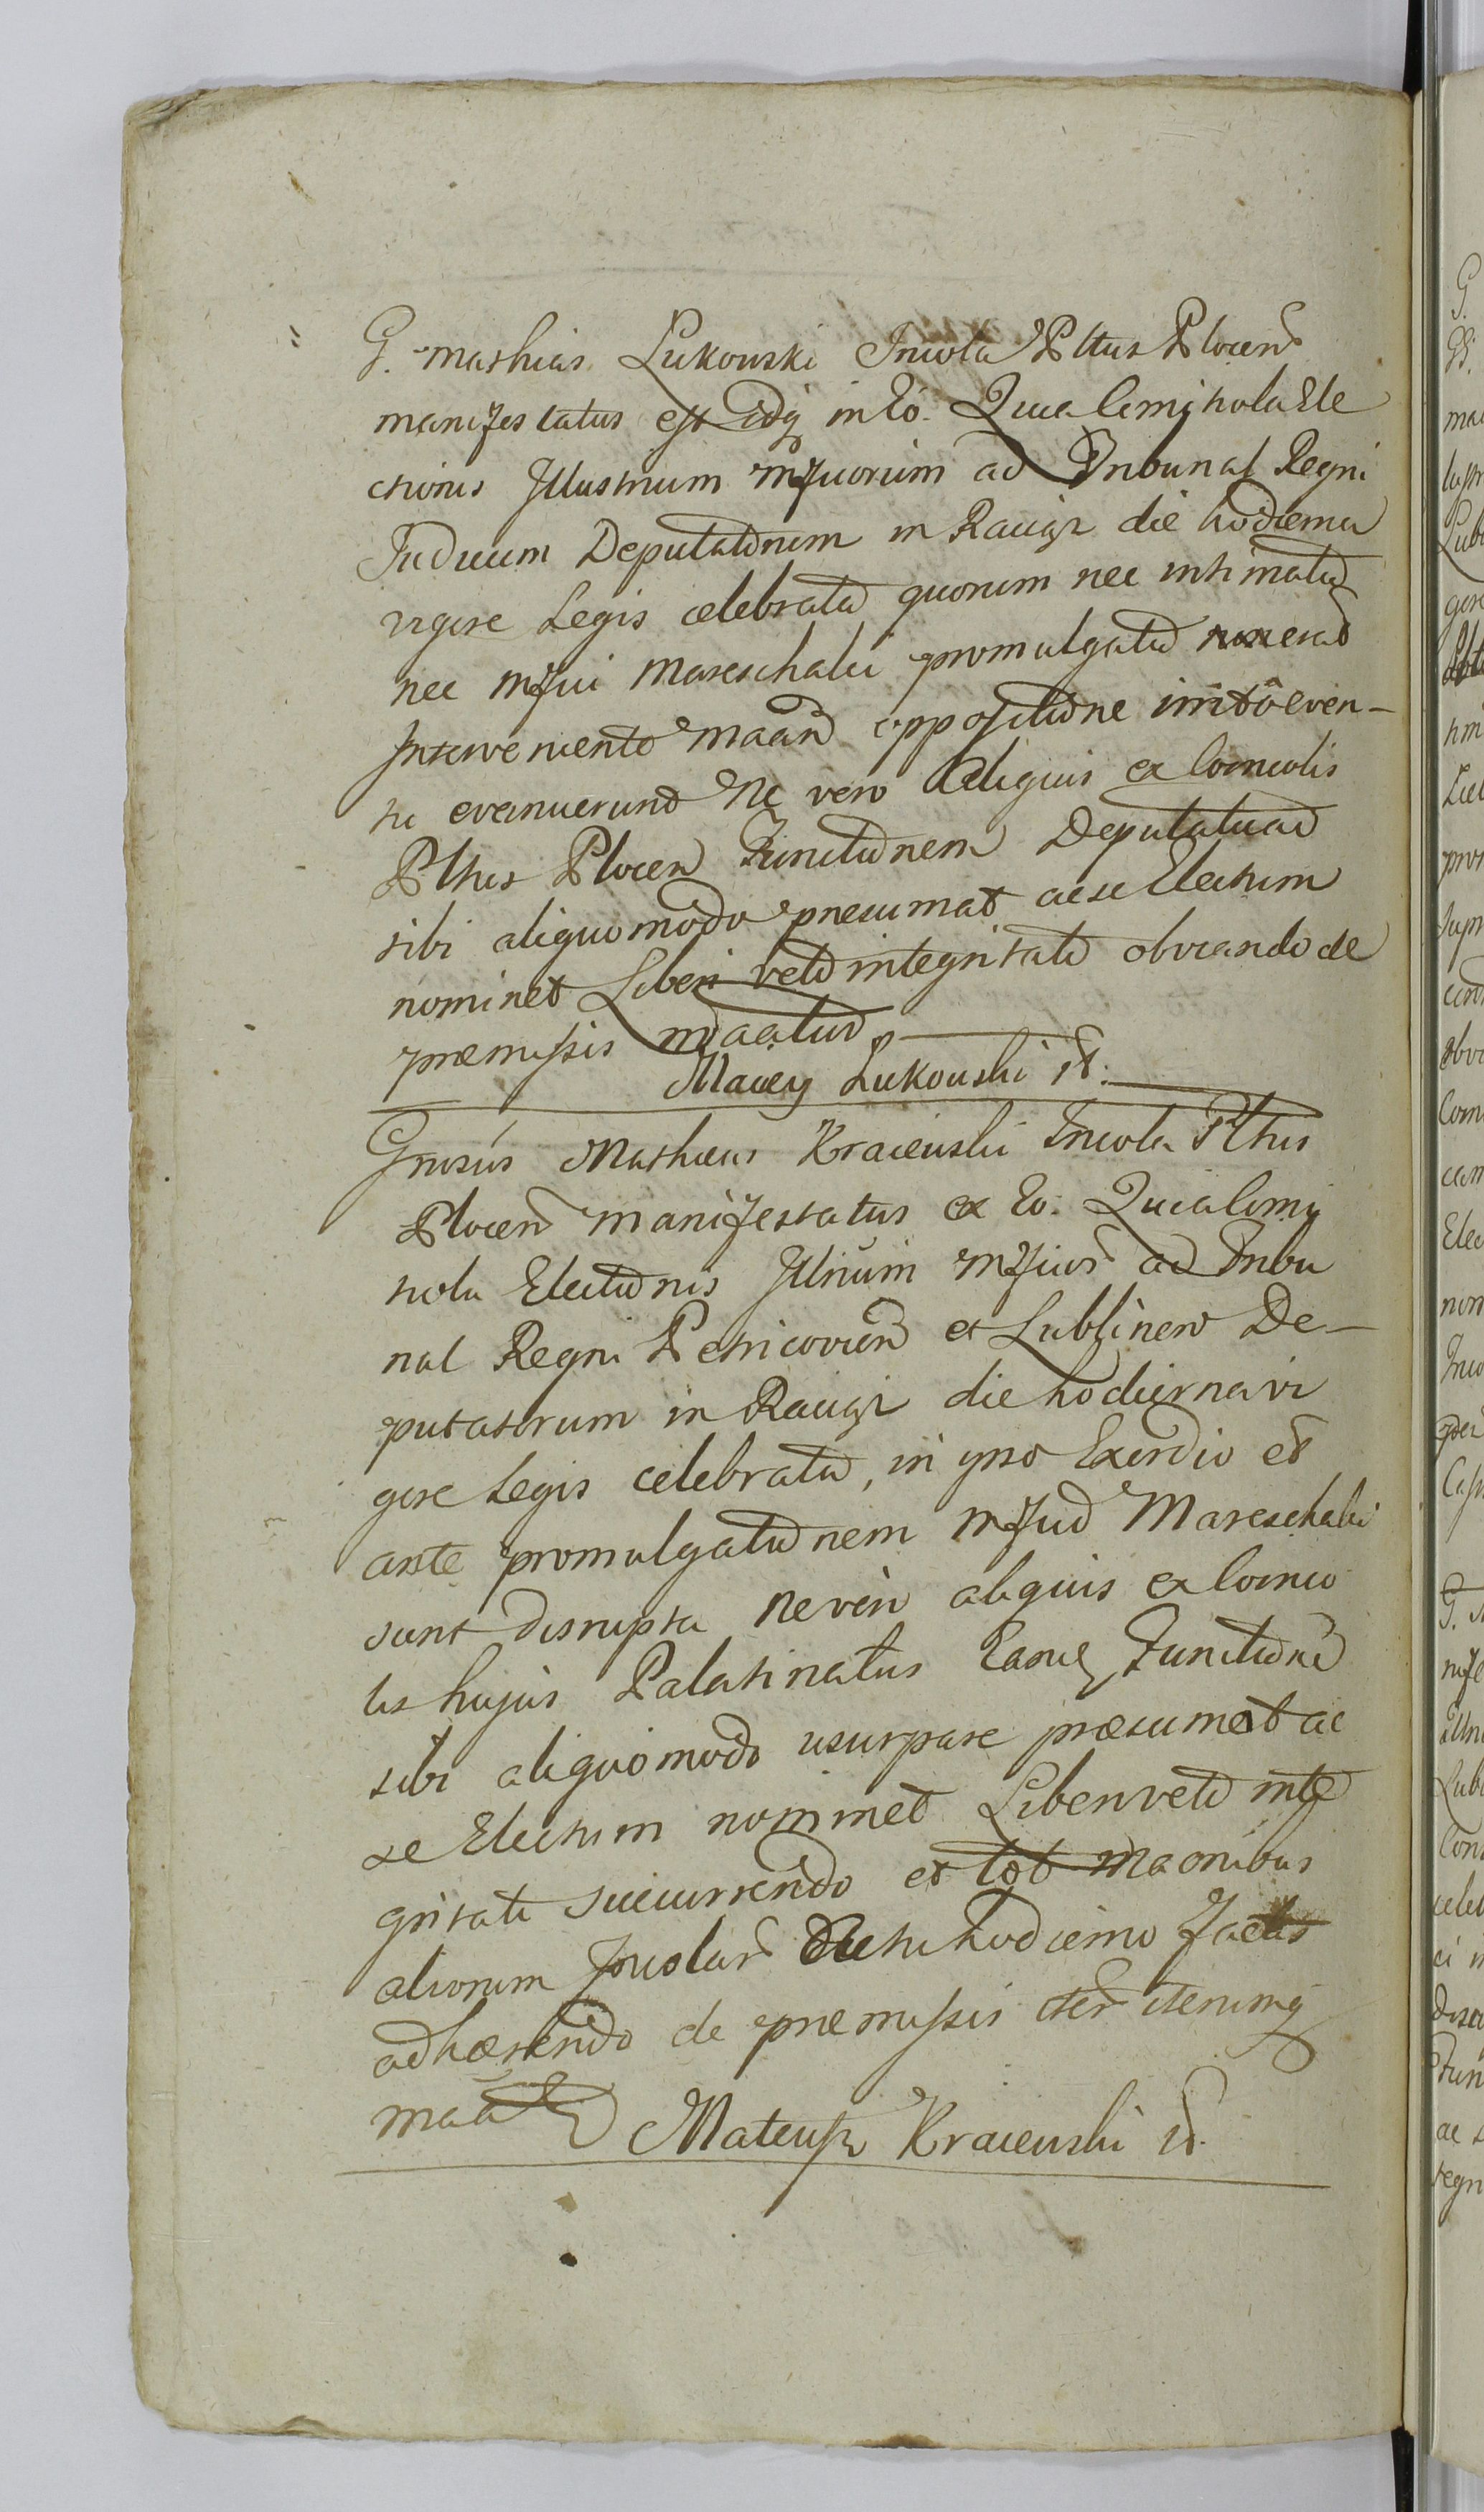 G. Mathias Lukowski Incola Plttus Plocen
manifestatus est idq in Eo. Quia Comitiola Ele
ctionis Illustrium mfficorum ad Tribunal Regni
Judicum Deputatorum in Raciąż die hodierna
vigore Legis celebrata quorum nec intimatio
nec mffici Mareschalci promulgatio erat
Interveniente maand oppositione irrito even-
tu evanuerunt Ne vero Aliquis ex Coincolis
Plttus Plocen Functionem Deputatuad
sibi aliquo modo presumat ac se Electum
nominet Liberi veto integritati obviando de
præmissis maatur
Maciey Lukowski st.
Gnrosus Mathæus Kraiewski Incola Plttus
Plocen manifestatus ex Eo. Quia Comi
tiola Electionis Illrium mfficor ad Tribu
nal Regni Petricovien et Lublinen De-
putatorum in Raciąż die hodierna vi
gore Legis celebrata, in ipso Exordio et
ante promulgationem mffici Mareschalci
sunt disrupta ne vero aliquis ex Coinco
lis hujus Palatinatus Eamq Functione
sibi aliquo modo usurpare præsumat ac
se Electum nominet Liberi veto inte
gritati succurrendo et tot maonibus
aliorum Incolar Actu hodierno factis
adhærendo de præmissis iter iterumq
maatur
Mateusz Kraiewski st.